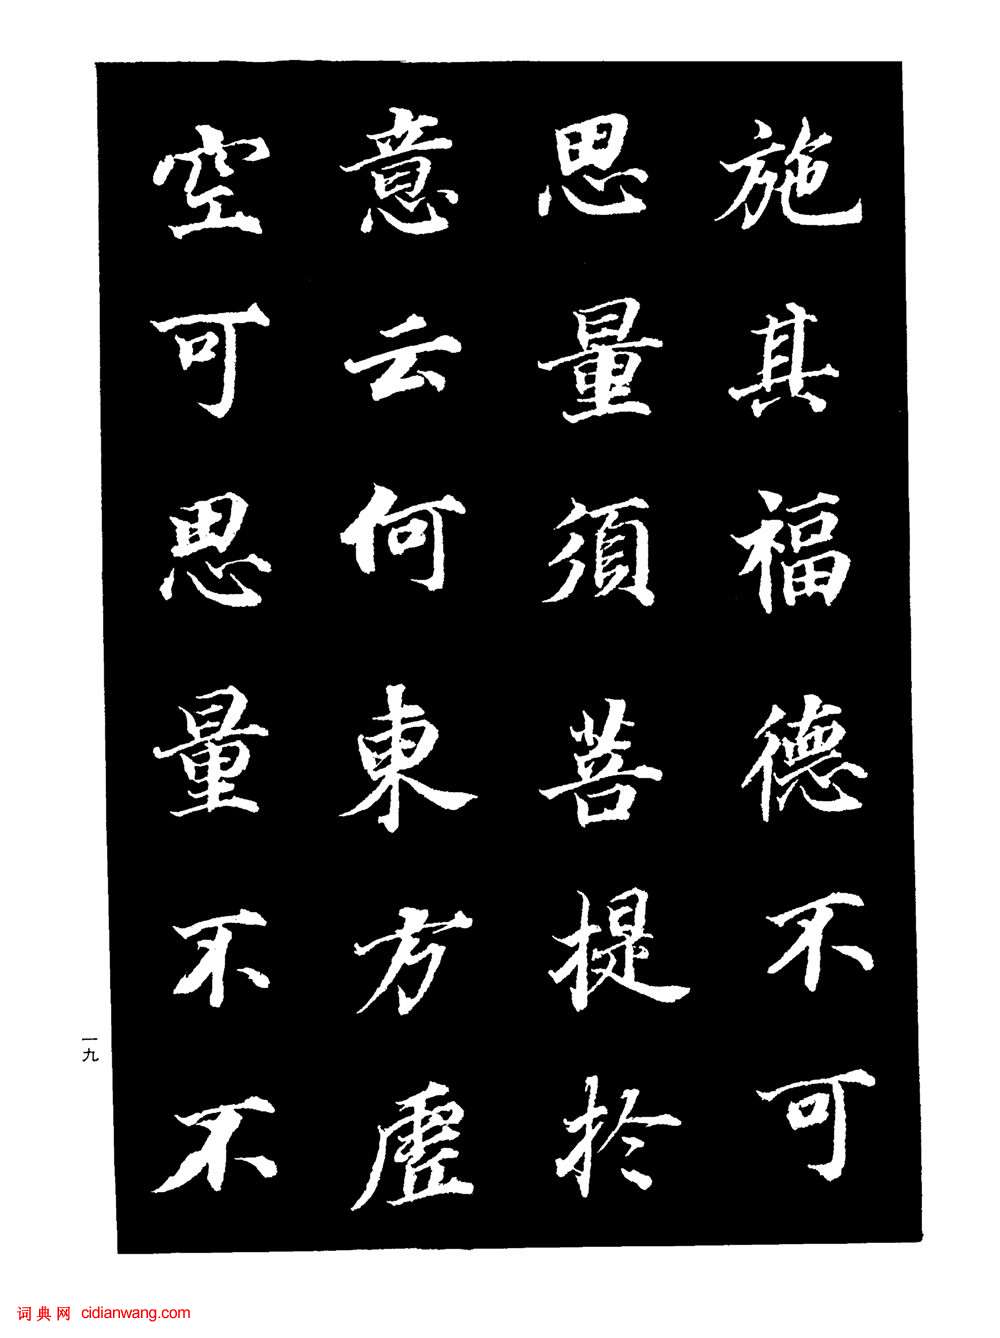 施其福德不可
思量須菩提於
意云何東方虛
空可思量不不
一九
词典网 cidianwang.com